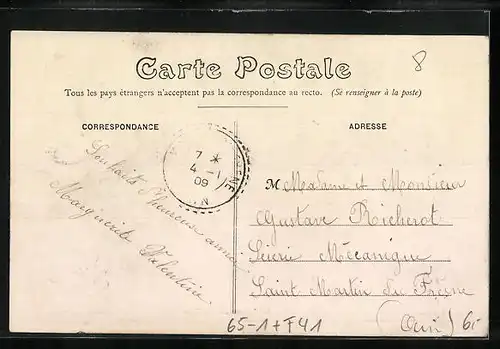 8
Carte Postale
Tous les pays étrangers n'acceptent pas la correspondance au recto. (Se renseigner à la poste)
CORRESPONDANCE
ADRESSE
7 *
4 - 1
09
Souhaits d'heureuse année
Marguerite Valentine
M Madame et Monsieur
Gustave Richerot
Scierie Mécanique
Saint Martin du Fresne
(Ain)
6.-
65-1+F41